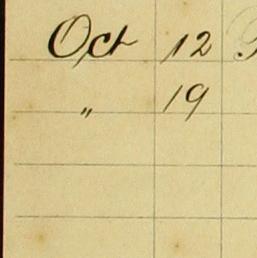 Oct 12
" 19